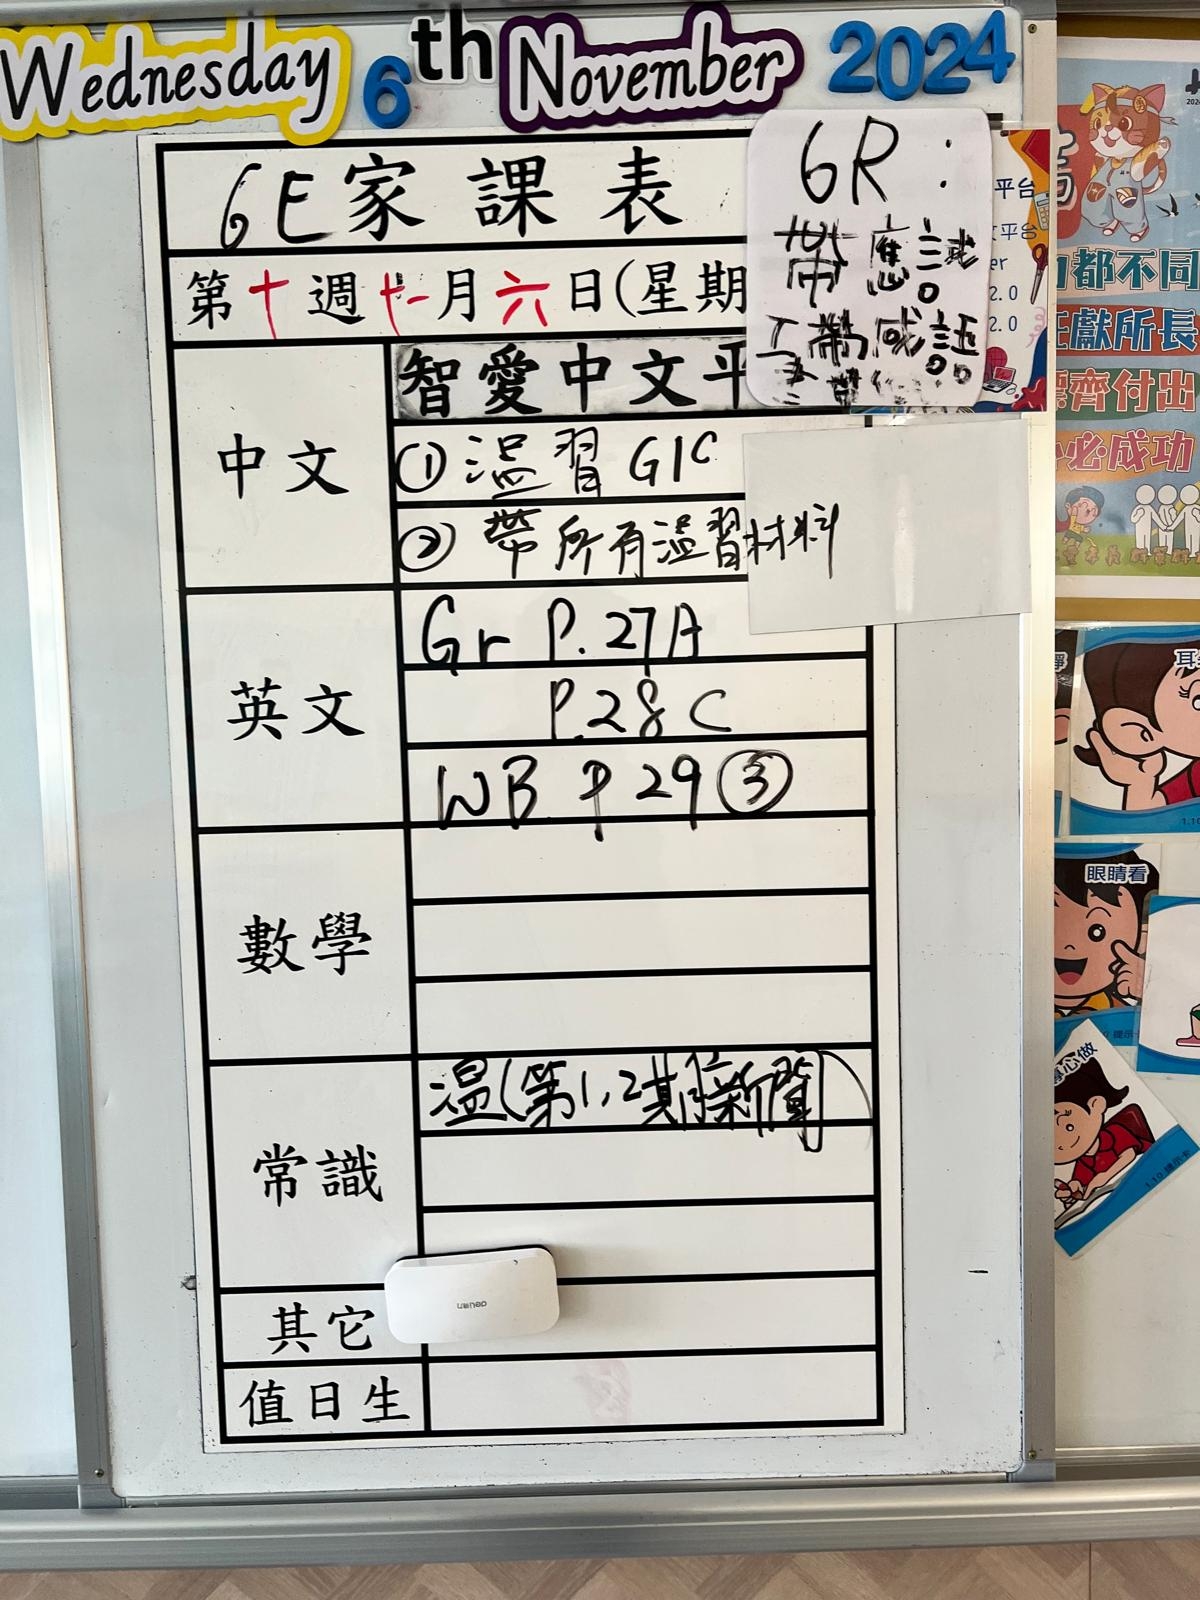 Wednesday 6th November 2024
6E家課表
第十週十一月六日(星期
6R:
帶應試
感謝
中文
智愛中文平
① 温習 G1C
② 帶所有温習材料
英文
Gr P.27A
P.28C
WB P29 ③
數學
常識
温(第1,2期新聞)
其它
值日生
deli
平台
平台
er
2.0
2.0
都不同
獻所長
齊付出
必成功
眼睛看
心做
1.10 提示卡